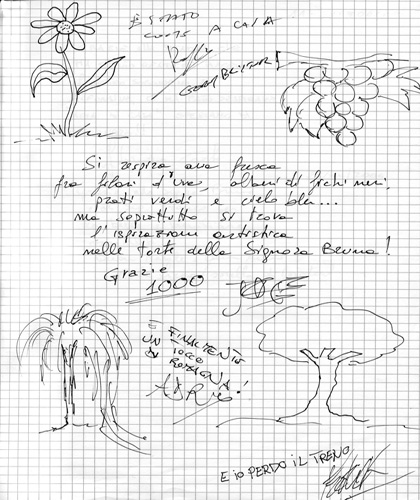 È STATO
COME A CASA
Si respira aria fresca
fra filari d'uva, alberi di fichi neri,
prati verdi e cielo blu...
ma soprattutto si trova
l'ispirazione artistica
nelle torte della Signora Bruna!
Grazie
1000
È FINALMENTE
UN TOCCO
DI ROMAGNA!
E IO PERDO IL TRENO